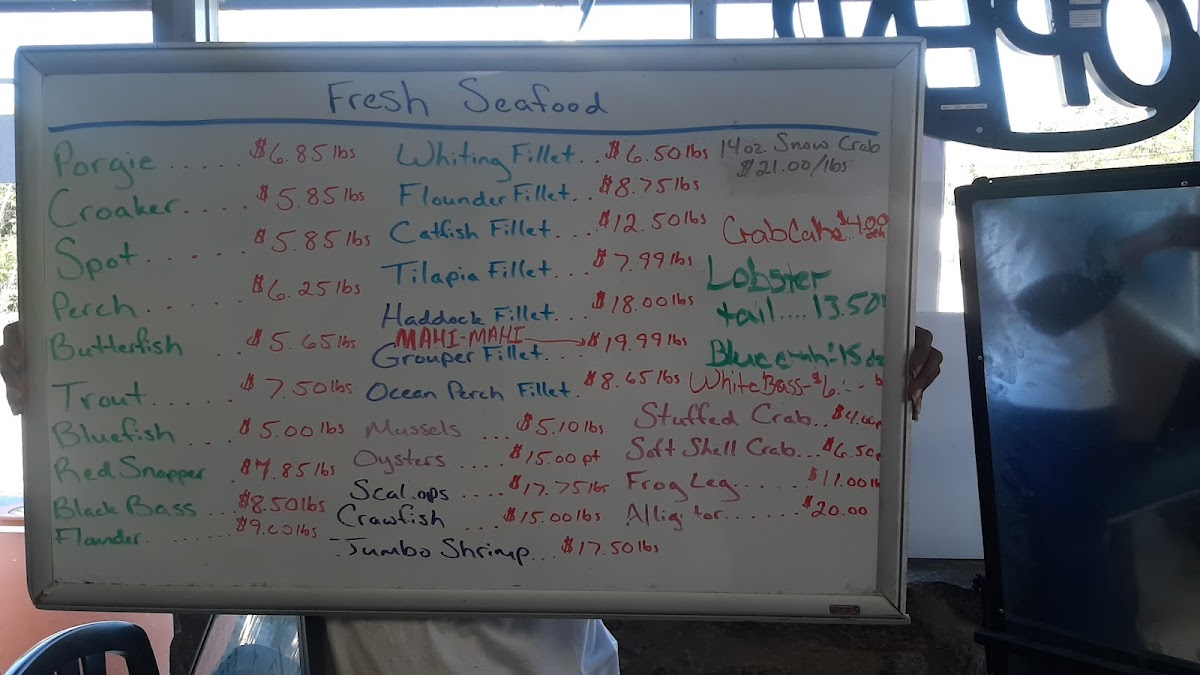 OPEN
Fresh Seafood
Porgie ...... $6.85 lbs
Croaker.... $5.85 lbs
Spot ...... $5.85 lbs
Perch ...... $6.25 lbs
Butterfish ... $5.65 lbs
Trout ...... $7.50 lbs
Bluefish .... $5.00 lbs
Red Snapper .. 7.85 lbs
Black Bass ... $8.50 lbs
Flounder. ...... lbs
Whiting Fillet.. $6.50 lbs
Flounder Fillet.. $8.75 lbs
Catfish Fillet.... $12.50 lbs
Tilapia Fillet.... $7.99 lbs
Haddock Fillet.... $18.00 lbs
MAHI-MAHI
Grouper Fillet.... $19.99 lbs
Ocean Perch Fillet. $8.65 lbs
Mussels ... $5.10 lbs
Oysters .... $15.00 pt
Scalops .... $17.75 lbs
Crawfish .... $15.00 lbs
-Jumbo Shrimp... $17.50 lbs
14 oz. Snow Crab
$21.00/lbs
Crab Cake $4.00
Lobster
tail.... 13.50
Blue crab 15
White Bass- $6
Stuffed Crab.. $4.00
Soft Shell Crab... $6.50
Frog Leg...... $11.00 lb
Alligator....... $20.00